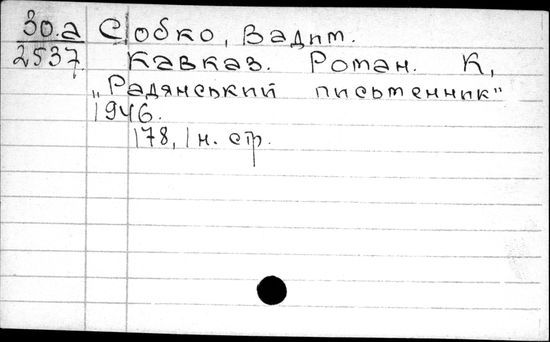 30.а Собко, Вадим.
2537 Кавказ. Роман. К,
„Радянський письменник"
1946.
178, 1 н. стр.